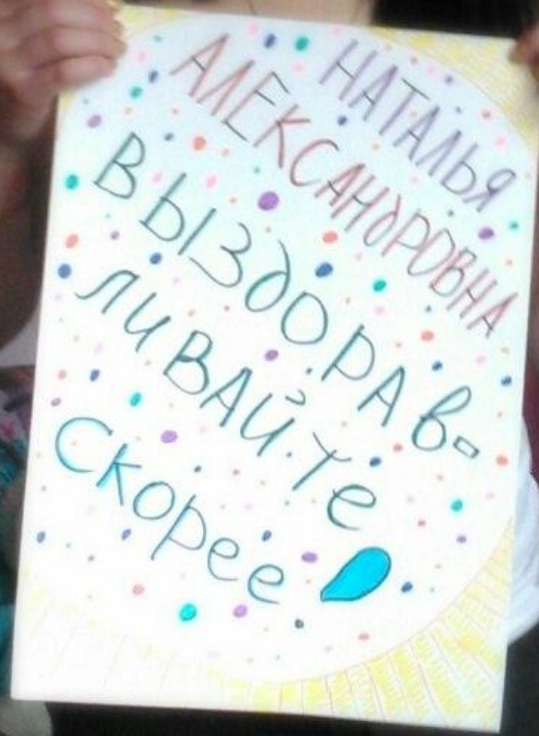 НАТАЛЬЯ
АЛЕКСАНДРОВНА
ВЫЗДОРАВ-
ЛИВАЙТЕ
Скорее!